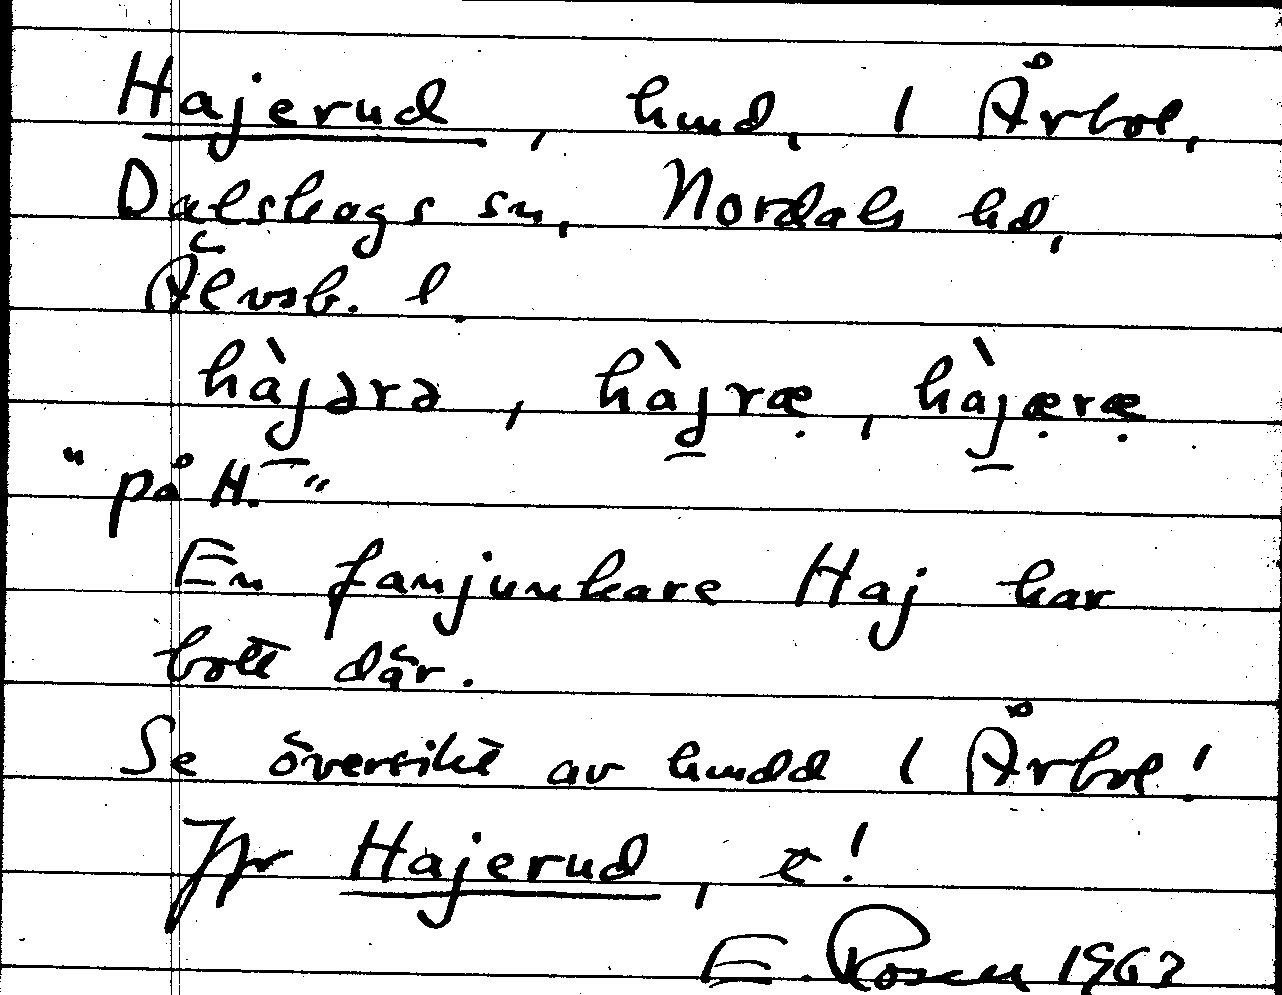 Hajerud, hmd, i Årbol,
Dalskogs sn, Nordals hd,
Älvsb. l.
hàjərə, hàjræ̣, hàjæ̣ræ̣
"på H.‾"
En fanjunkare Haj har
bott där.
Se översikt av hmdd i Årbol!
Jfr Hajerud, t!
E. Rosen 1963